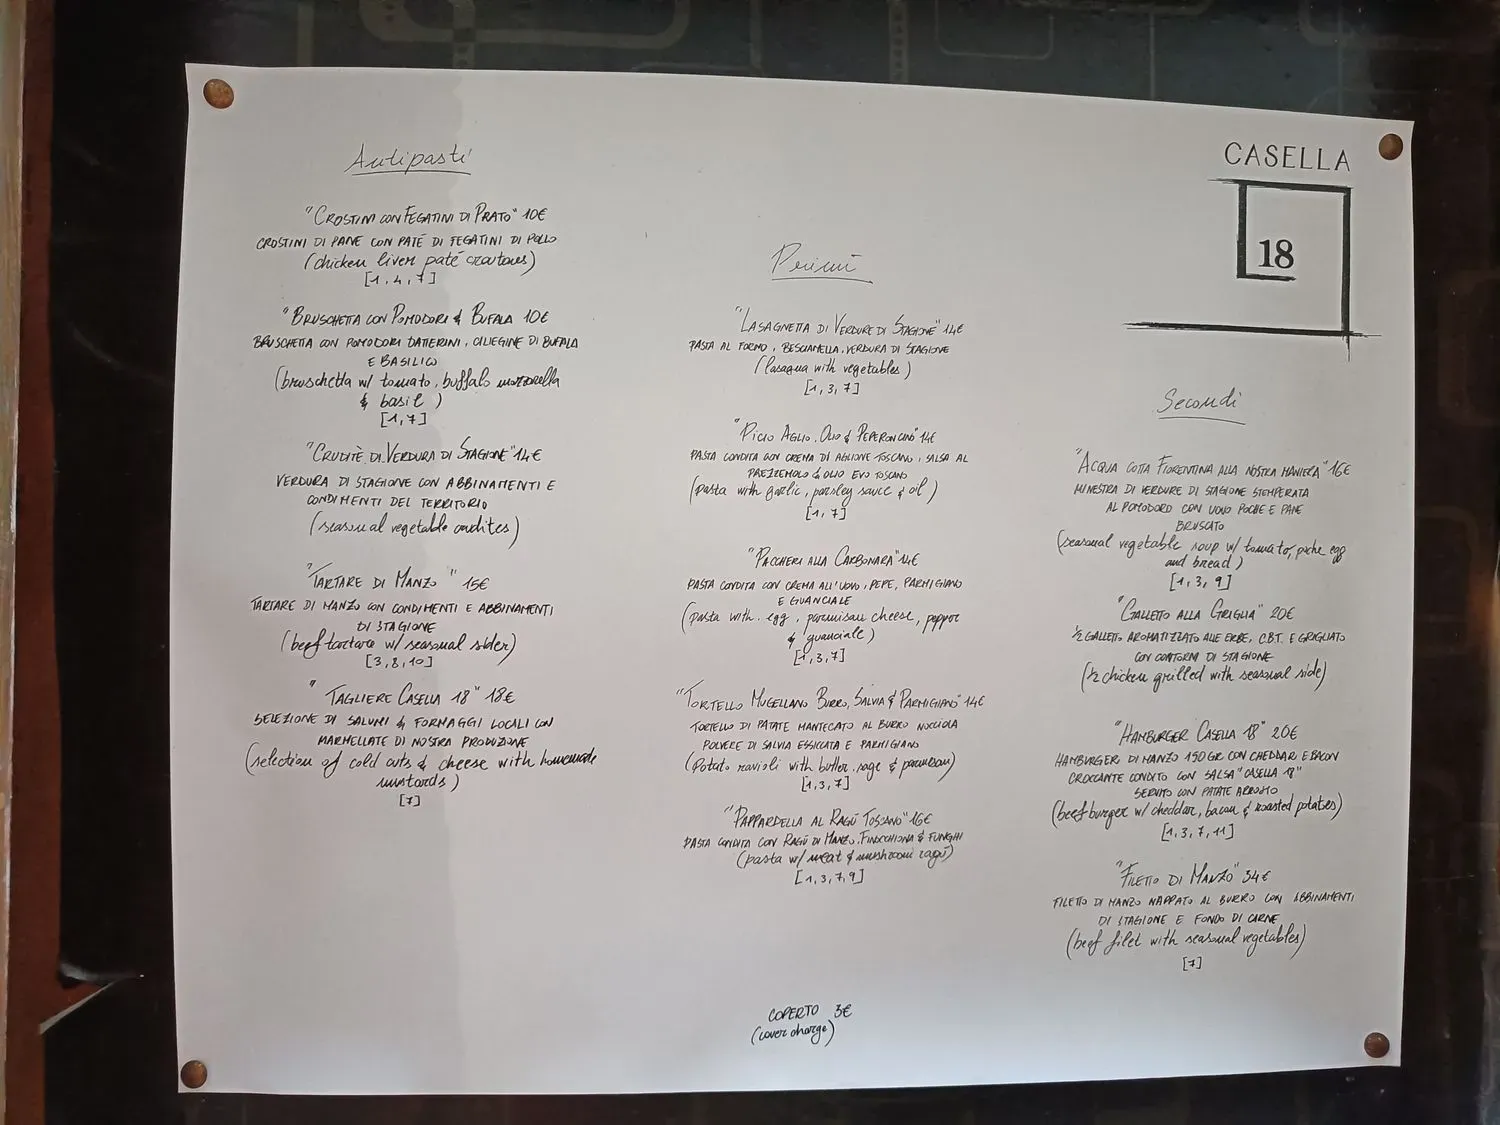 Antipasti
"CROSTINI CON FEGATINI DI PRATO" 10€
CROSTINI DI PANE CON PATÉ DI FEGATINI DI POLLO
(chicken liver paté croutons)
[1,4,7]
"BRUSCHETTA CON POMODORI & BUFALA 10€
BRUSCHETTA CON POMODORI DATTERINI, CILIEGINE DI BUFALA
E BASILICO
(bruschetta w/ tomato, buffalo mozzarella
& basil)
[1,7]
"CRUDITÈ DI VERDURA DI STAGIONE" 14€
VERDURA DI STAGIONE CON ABBINAMENTI E
CONDIMENTI DEL TERRITORIO
(seasonal vegetable crudites)
"TARTARE DI MANZO" 15€
TARTARE DI MANZO CON CONDIMENTI E ABBINAMENTI
DI STAGIONE
(beef tartare w/ seasonal sider)
[3,8,10]
"TAGLIERE CASELLA 18" 18€
SELEZIONE DI SALUMI & FORMAGGI LOCALI CON
MARMELLATE DI NOSTRA PRODUZIONE
(selection of cold cuts & cheese with homemade
mustards)
[7]
Primi
"LASAGNETTA DI VERDURE DI STAGIONE" 14€
PASTA AL FORNO, BESCIAMELLA, VERDURA DI STAGIONE
(lasagna with vegetables)
[1,3,7]
"PICIO AGLIO, OLIO & PEPERONCINO" 14€
PASTA CONDITA CON CREMA DI AGLIONE TOSCANO, SALSA AL
PREZZEMOLO & OLIO EVO TOSCANO
(pasta with garlic, parsley sauce & oil)
[1,7]
"PACCHERI ALLA CARBONARA" 14€
PASTA CONDITA CON CREMA ALL'UOVO, PEPE, PARMIGIANO
E GUANCIALE
(pasta with egg, parmisan cheese, pepper
& guanciale)
[1,3,7]
"TORTELLO MUGELLANO BURRO, SALVIA & PARMIGIANO" 14€
TORTELLO DI PATATE MANTECATO AL BURRO NOCCIOLA
POLVERE DI SALVIA ESSICCATA E PARMIGIANO
(Potato ravioli with butter, sage & parmesan)
[1,3,7]
"PAPPARDELLA AL RAGÙ TOSCANO" 16€
PASTA CONDITA CON RAGÙ DI MANZO, FINOCCHIONA & FUNGHI
(pasta w/ meat & mushroom ragù)
[1,3,7,9]
COPERTO 3€
(cover charge)
CASELLA
18
Secondi
"ACQUA COTTA FIORENTINA ALLA NOSTRA MANIERA" 16€
MINESTRA DI VERDURE DI STAGIONE STEMPERATA
AL POMODORO CON UOVO POCHE E PANE
BRUSCATO
(seasonal vegetable soup w/ tomato, poche egg
and bread)
[1,3,9]
"GALLETTO ALLA GRIGLIA" 20€
½ GALLETTO AROMATIZZATO ALLE ERBE, C.B.T. E GRIGLIATO
CON CONTORNI DI STAGIONE
(½ chicken grilled with seasonal side)
"HAMBURGER CASELLA 18" 20€
HAMBURGER DI MANZO 150GR CON CHEDDAR E BACON
CROCCANTE CONDITO CON SALSA "CASELLA 18"
SERVITO CON PATATE ARROSTO
(beef burger w/ cheddar, bacon & roasted potatoes)
[1,3,7,11]
"FILETTO DI MANZO" 34€
FILETTO DI MANZO NAPPATO AL BURRO CON ABBINAMENTI
DI STAGIONE E FONDO DI CARNE
(beef filet with seasonal vegetables)
[7]